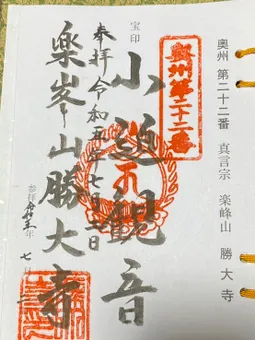 奥州 第二十二番 真言宗 楽峰山 勝大寺
奥州第二十二番
宝印
小迫観音
奉拝 令和五年七月二日
楽峯山勝大寺
参拝 令和五年 七月